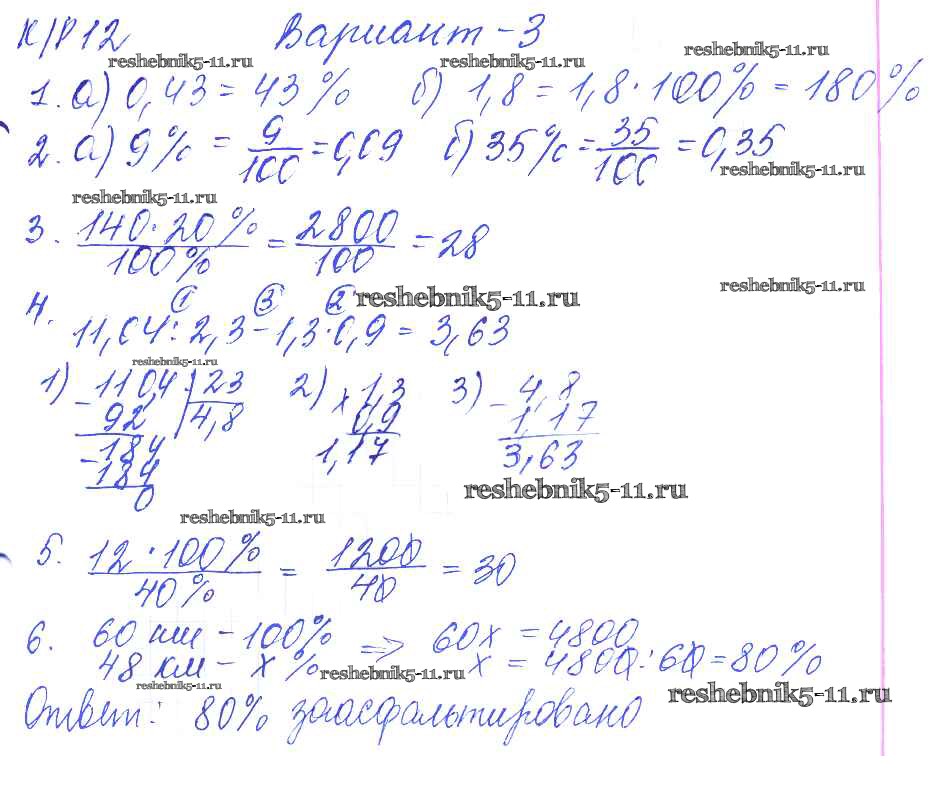 К/Р 12 Вариант - 3
reshebnik5-11.ru reshebnik5-11.ru reshebnik5-11.ru
1. а) 0,43 = 43% б) 1,8 = 1,8 · 100% = 180%
2. а) 9% = 9/100 = 0,09 б) 35% = 35/100 = 0,35
reshebnik5-11.ru
reshebnik5-11.ru
3. 140 · 20% / 100% = 2800/100 = 28
reshebnik5-11.ru reshebnik5-11.ru
① ③ ②
4. 11,04 : 2,3 - 1,3 · 0,9 = 3,63
reshebnik5-11.ru
1) 110,4 | 23 2) 1,3 3) 4,8
- 92 | 4,8 × 0,9 - 1,17
- 184 1,17 3,63
184
0
reshebnik5-11.ru
reshebnik5-11.ru
5. 12 · 100% / 40% = 1200/40 = 30
6. 60 км - 100% => 60х = 4800
48 км - х% х = 4800 : 60 = 80%
reshebnik5-11.ru
reshebnik5-11.ru reshebnik5-11.ru
Ответ: 80% заасфальтировано